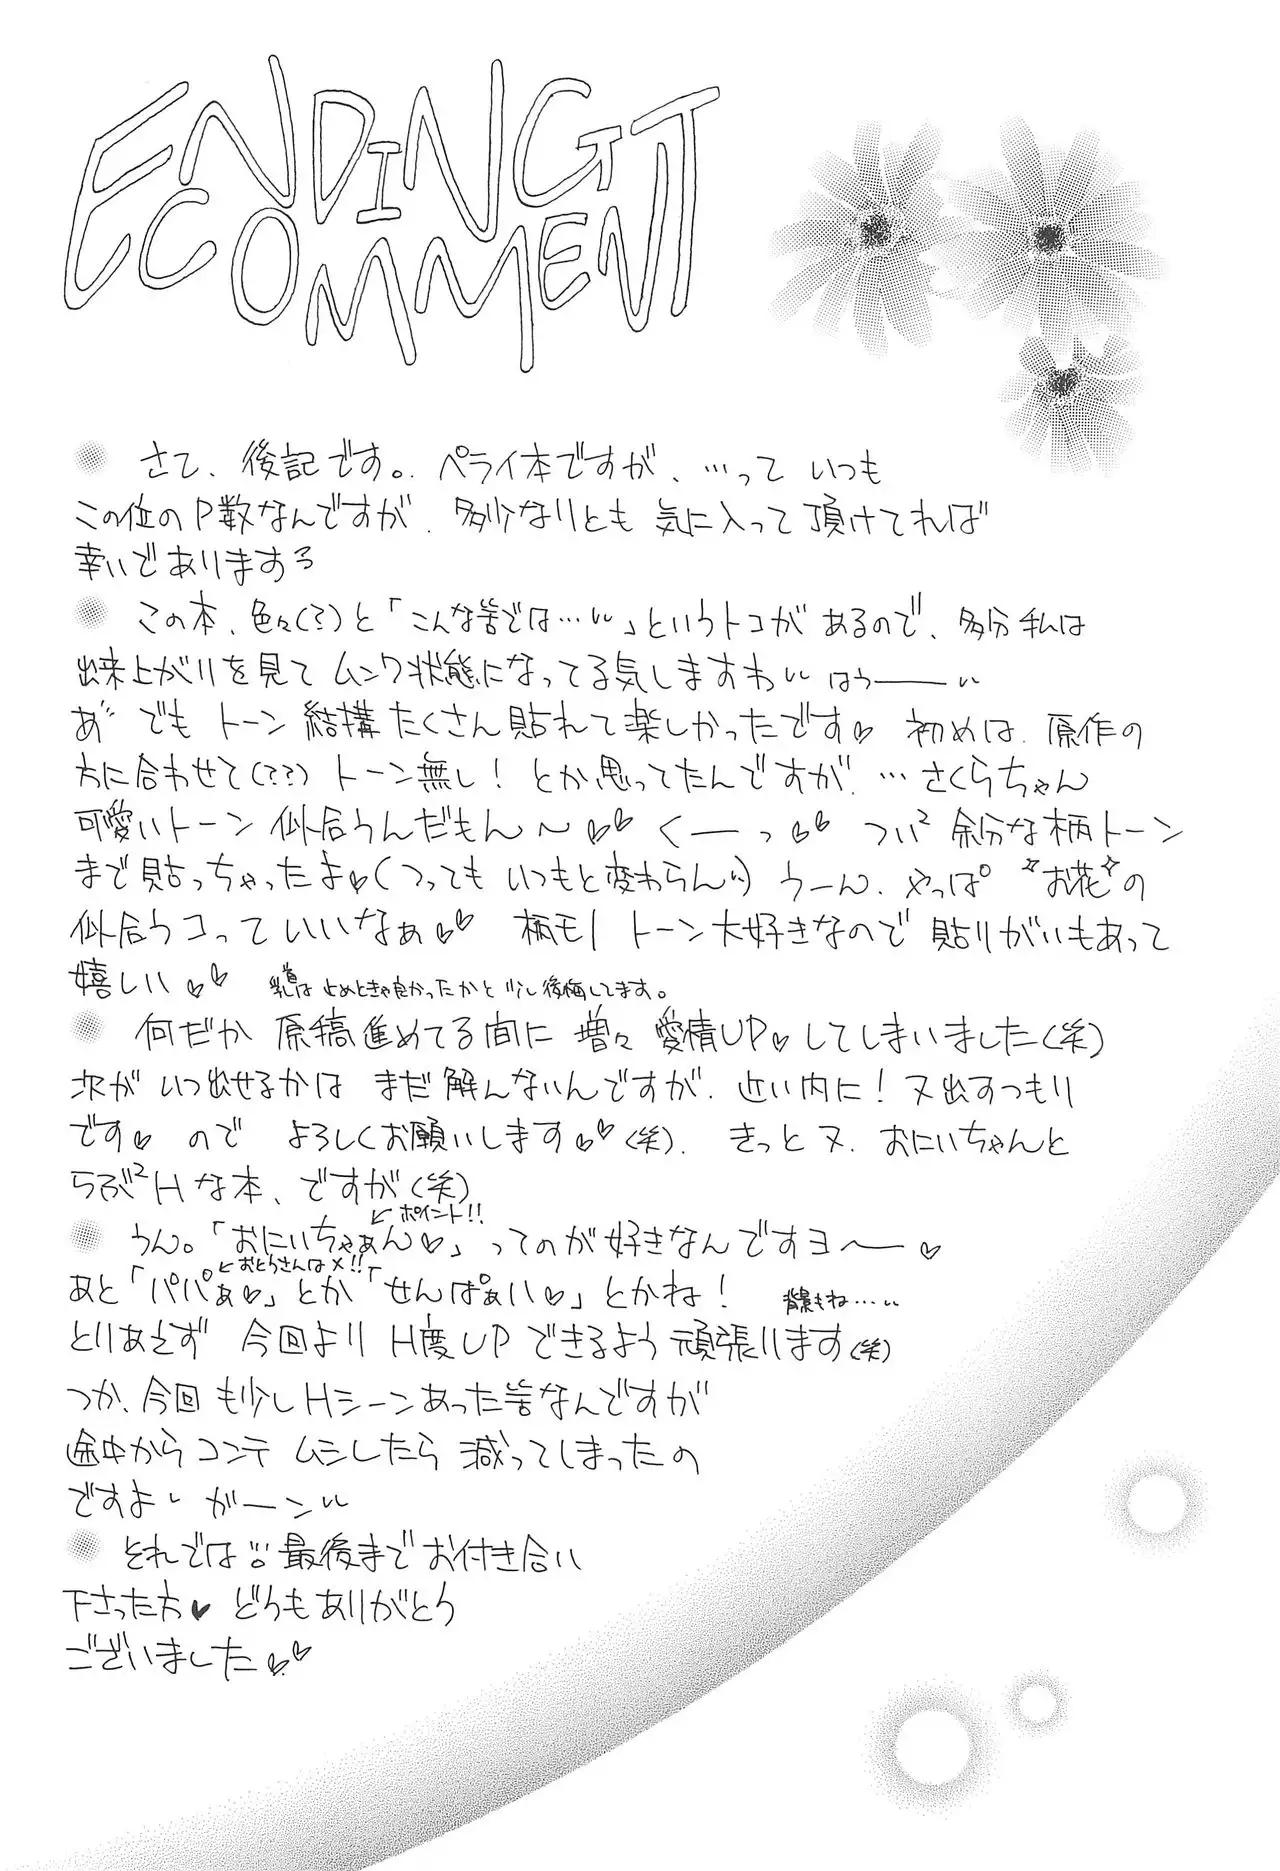 ENDING
COMMENT
さて、後記です。ペライ本ですが、…って いつも
この位のP数なんですが、多少なりとも 気に入って頂けてれば
幸いであります
この本、色々(?)と「こんな筈では…」というトコがあるので、多分私は
出来上がりを見て ムンク状態になってる気しますわ はぅーー
あ" でも トーン 結構 たくさん貼れて楽しかったです♡ 初めは、原作の
方に合わせて(??) トーン無し! とか思ってたんですが、…さくらちゃん
可愛いトーン 似合うんだもん〜♡♡ くーっ♡♡ つい² 余分な柄トーン
まで貼っちゃったよ♡(つっても いつもと変わらん) うーん、やっぱ "お花"の
似合うコっていいなぁ♡♡ 柄モノトーン大好きなので 貼りがいもあって
嬉しい♡♡ 乳首は止めときゃ良かったかと 少し後悔してます。
何だか 原稿進めてる間に 増々 愛情UP♡してしまいました(笑)
次が いつ出せるかは まだ解んないんですが、近い内に! 又出すつもり
です♡ ので よろしくお願いします♡♡(笑)、きっと又、おにいちゃんと
らぶ²Hな本、ですが(笑)
うん。「おにいちゃぁん♡」ってのが好きなんですヨ〜ー♡
←ポイント!!
あと「パパぁ♡」とか「せんぱぁい♡」とかね! 背景もね…
←おとうさんはメ!!
とりあえず 今回より H度UP できるよう頑張ります(笑)
つか、今回 も少しHシーンあった筈なんですが
途中から コンテ ムシしたら 減ってしまったの
ですよー がーン
それでは 最後まで お付き合い
下さった方♥ どうもありがとう
ございました♡♡